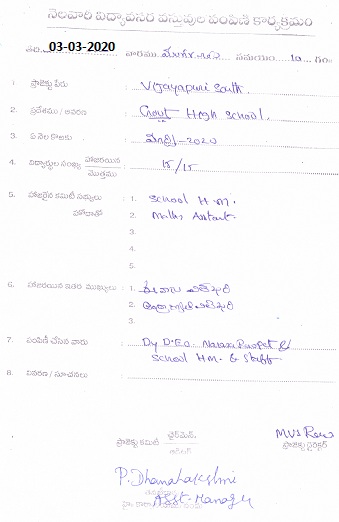 నెలవారి విద్యావసర వస్తువుల పంపిణి కార్యక్రమం
తేది. 03-03-2020 వారము మంగళ సమయం 10 గం
1 ప్రాజెక్టు పేరు : Vijayapuri South.
2. ప్రదేశము / ఆవరణ : Govt High School.
3. ఏ నెల కొరకు : మార్చి - 2020
4. విద్యార్థుల సంఖ్య హాజరయిన / మొత్తము : 15/15
5. హాజరైన కమిటీ సభ్యులు : 1. School H.M.
హోదాతో 2. Maths
3.
4.
5.
6. హాజరయిన ఇతర ముఖ్యులు : 1.
2.
3.
7. పంపిణీ చేసిన వారు : Dy D.E.O.
School HM. & Staff
8. వివరణ / సూచనలు :
ప్రాజెక్టు కమిటీ ఛైర్మెన్. MVS
ప్రాజెక్టు డైరెక్టర్
P. Dhanalakshmi
Asst. Manager